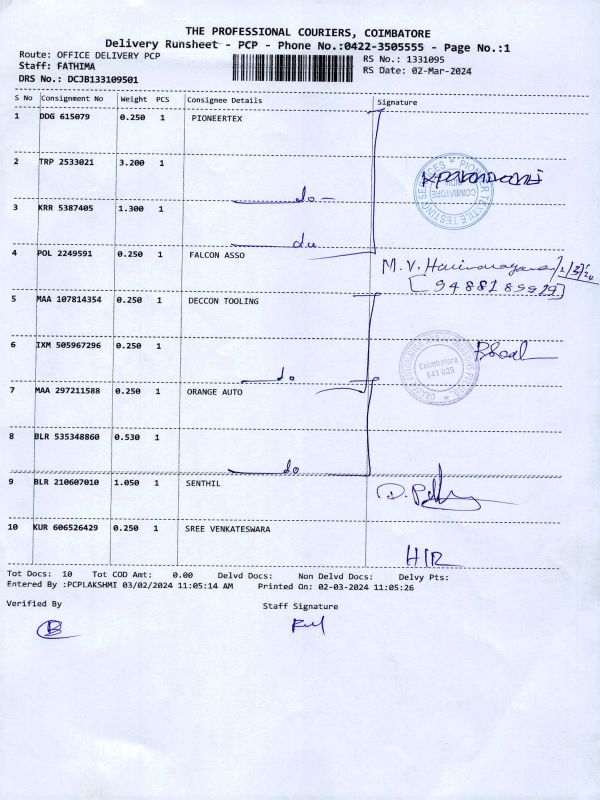 THE PROFESSIONAL COURIERS, COIMBATORE
Delivery Runsheet - PCP - Phone No.:0422-3505555 - Page No.:1
Route: OFFICE DELIVERY PCP
RS No.: 1331095
Staff: FATHIMA
RS Date: 02-Mar-2024
DRS No.: DCJB133109501
S No Consignment No Weight PCS Consignee Details Signature
1 DDG 615079 0.250 1 PIONEERTEX
2 TRP 2533021 3.200 1
do
3 KRR 5387405 1.300 1
do
4 POL 2249591 0.250 1 FALCON ASSO
M.V. 2/3/24
[9488185929]
5 MAA 107814354 0.250 1 DECCON TOOLING
6 IXM 505967296 0.250 1
Coimbatore
641 035
do
7 MAA 297211588 0.250 1 ORANGE AUTO
8 BLR 535348860 0.530 1
do
9 BLR 210607010 1.050 1 SENTHIL
10 KUR 606526429 0.250 1 SREE VENKATESWARA
Tot Docs: 10 Tot COD Amt: 0.00 Delvd Docs: Non Delvd Docs: Delvy Pts:
Entered By :PCPLAKSHMI 03/02/2024 11:05:14 AM Printed On: 02-03-2024 11:05:26
Verified By Staff Signature